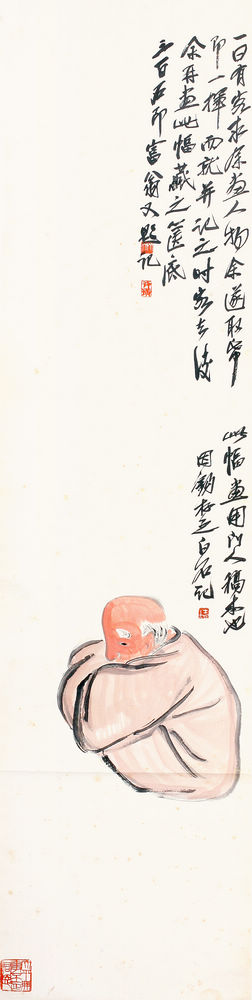 一日有客求余画人物余遂取笔
即一挥而就并记之时客去后
余再画此幅藏之箧底
三百石印富翁又题记
此幅画用门人稿本也
因钩存之白石记